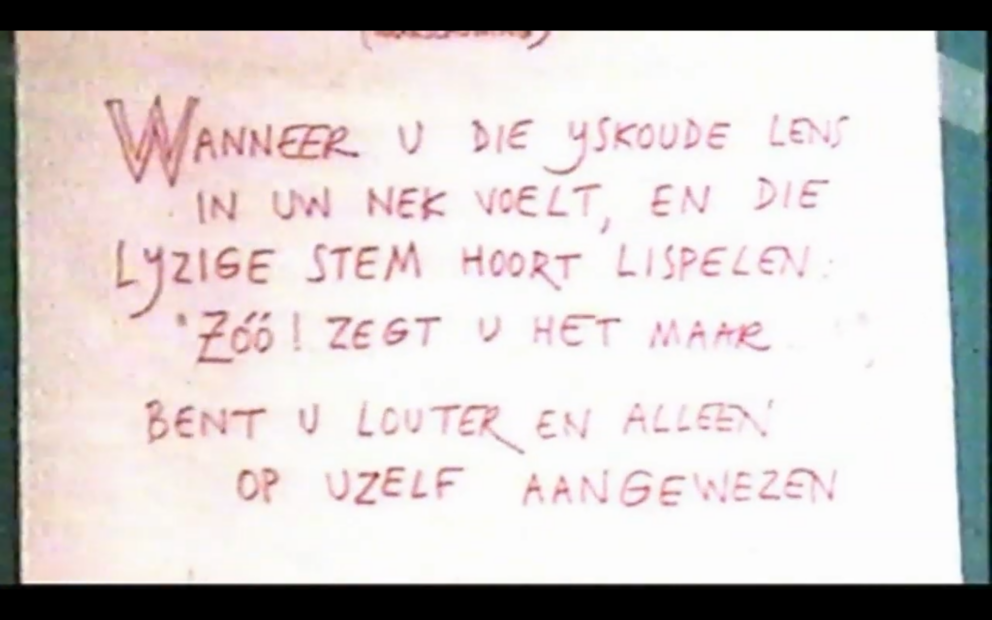 WANNEER U DIE YSKOUDE LENS
IN UW NEK VOELT, EN DIE
LYZIGE STEM HOORT LISPELEN:
"ZÓÓ! ZEGT U HET MAAR
BENT U LOUTER EN ALLEEN
OP UZELF AANGEWEZEN